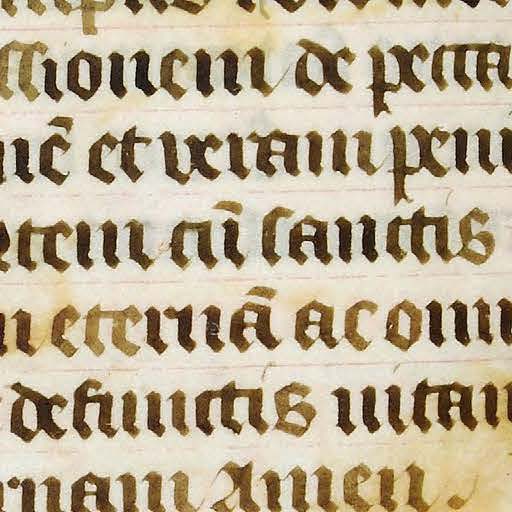 ssionem de pecca
nē et veram peni
etem cū sanctis
m eternā ac omn
defunctis uitam
rnam Amen.